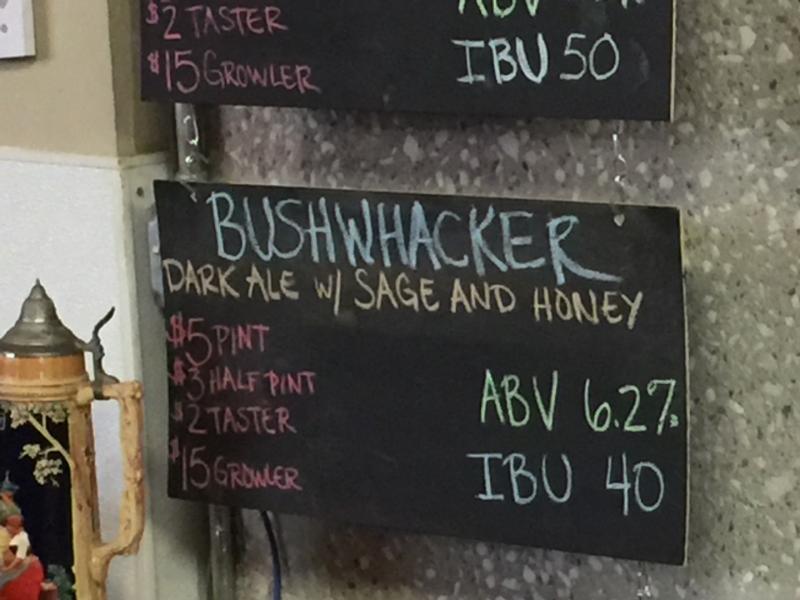 $2 TASTER
$15 GROWLER
ABV
IBU 50
BUSHWHACKER
DARK ALE W/ SAGE AND HONEY
$5 PINT
$3 HALF PINT
$2 TASTER
$15 GROWLER
ABV 6.2%
IBU 40